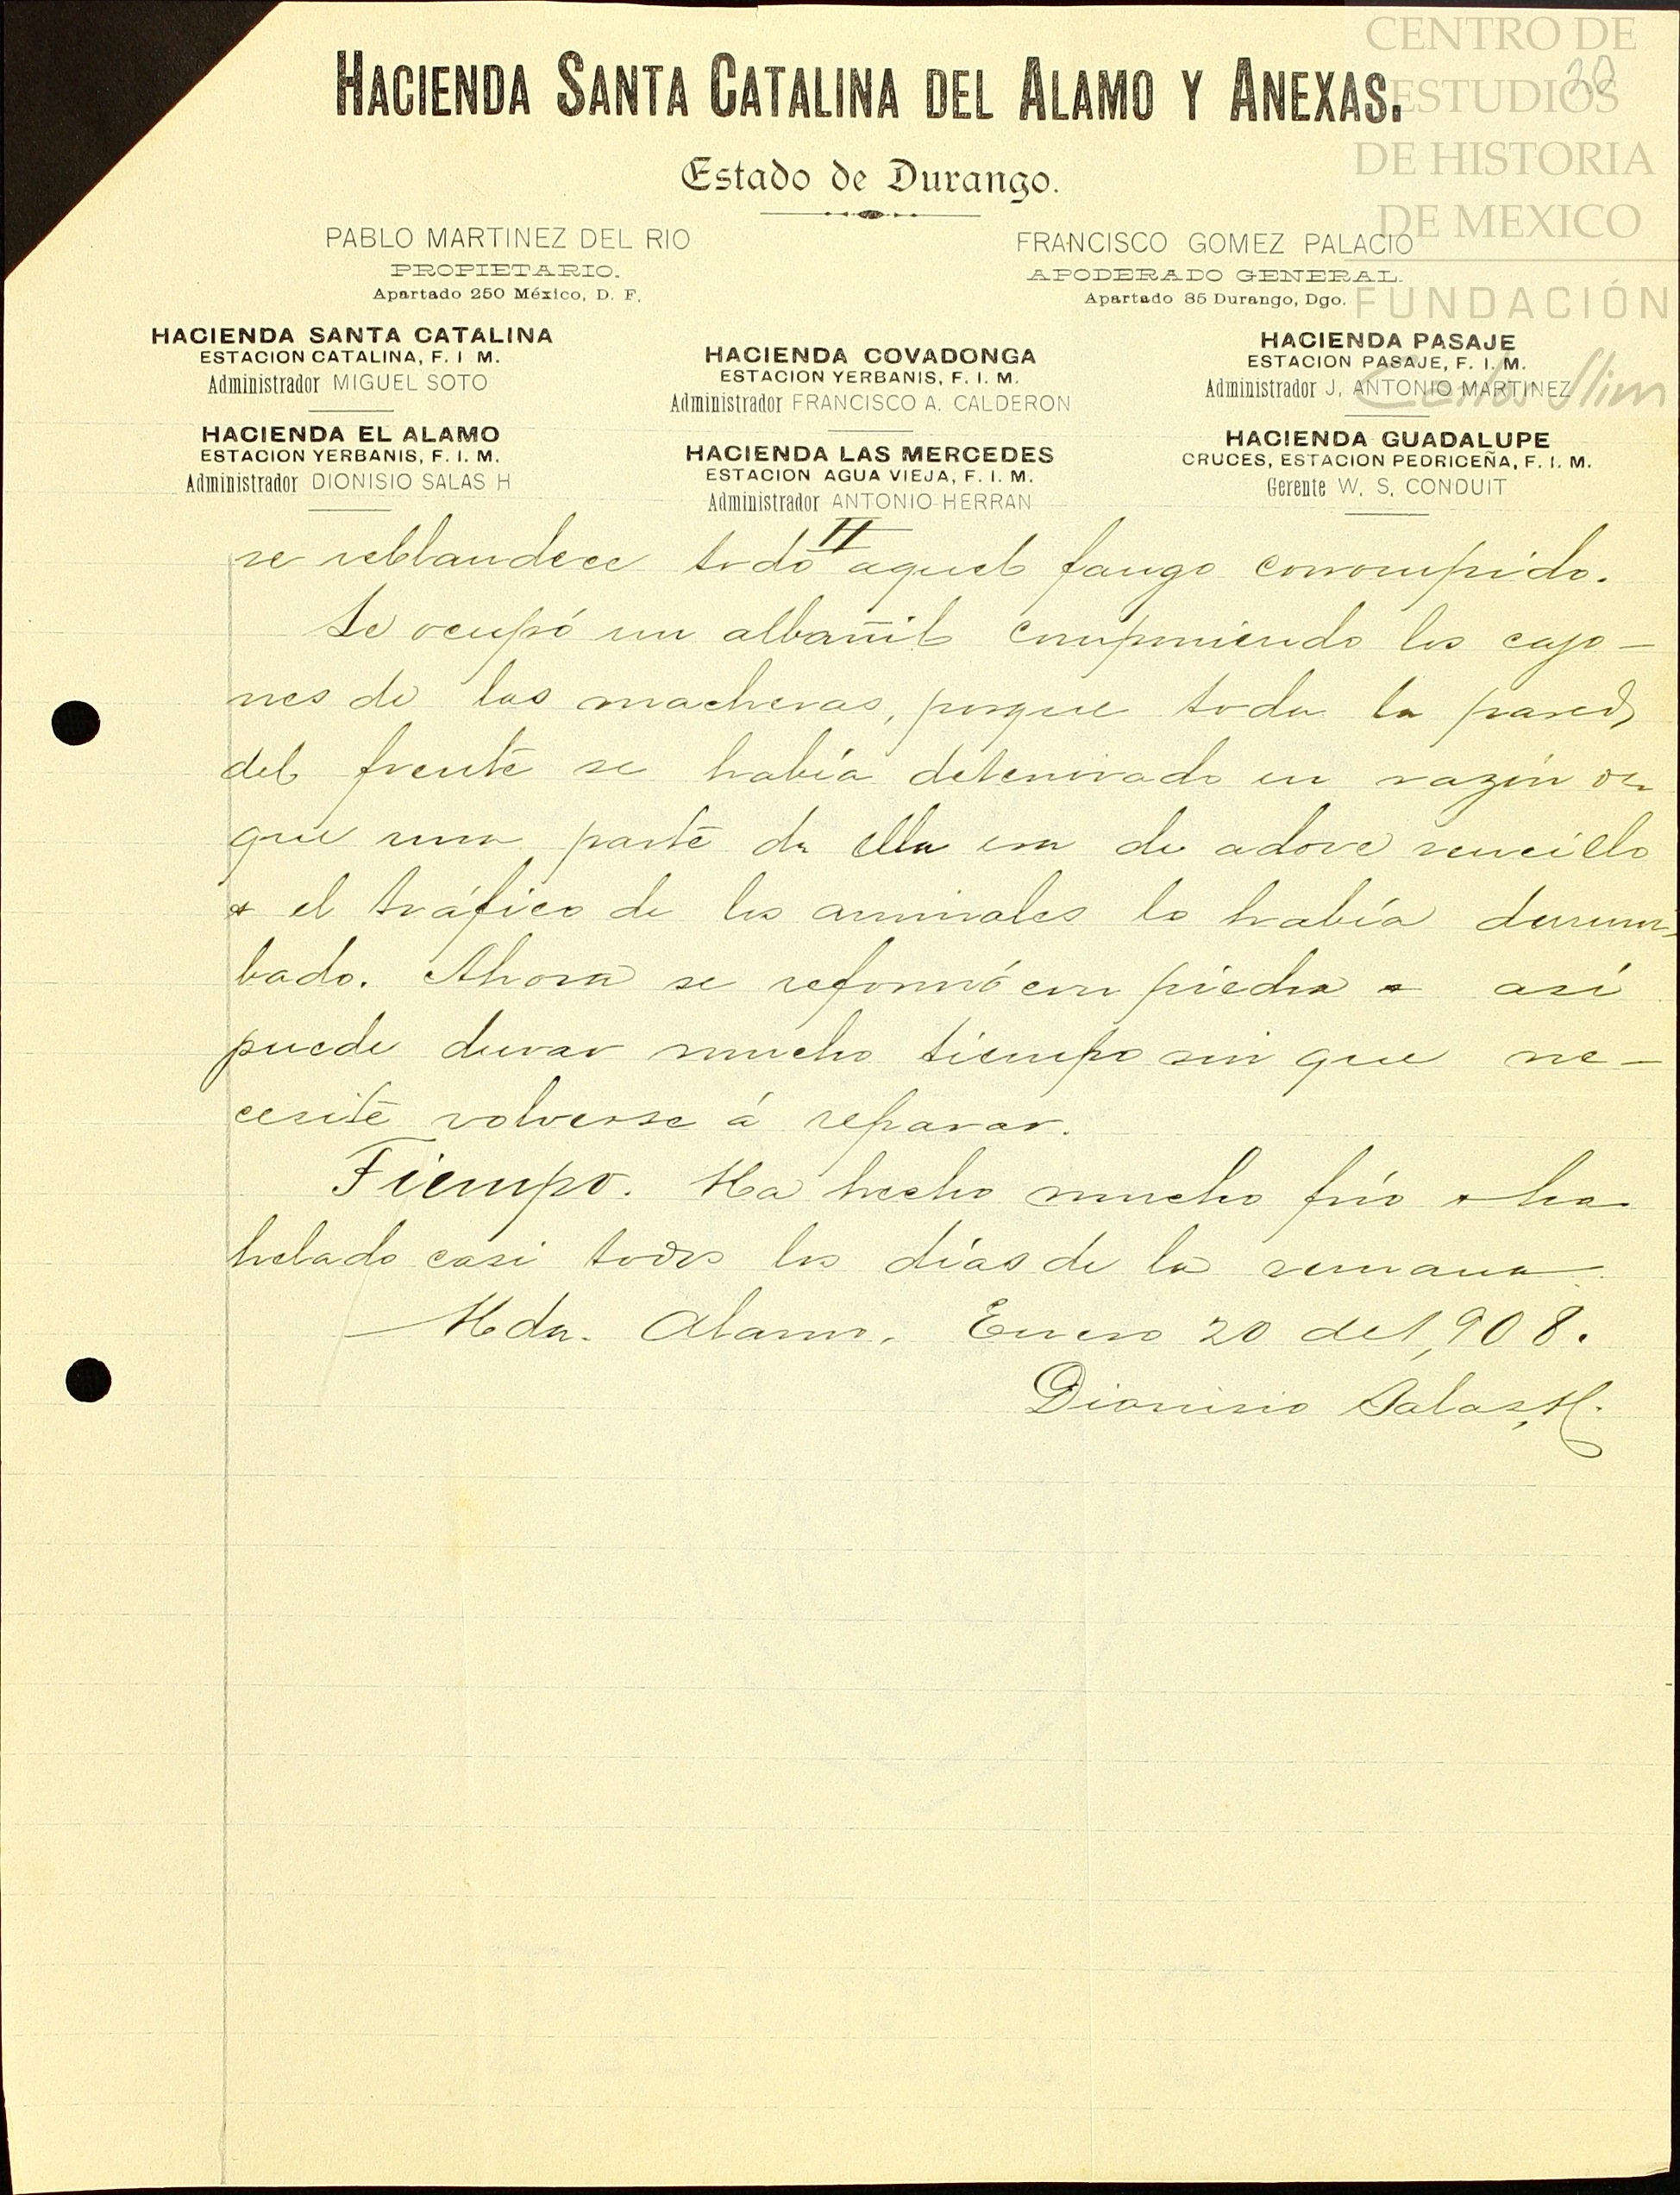 HACIENDA SANTA CATALINA DEL ALAMO Y ANEXAS.
Estado de Durango.
PABLO MARTINEZ DEL RIO
PROPIETARIO.
Apartado 250 México, D. F.
FRANCISCO GOMEZ PALACIO
APODERADO GENERAL
Apartado 85 Durango, Dgo.
HACIENDA SANTA CATALINA
ESTACION CATALINA, F. I M.
Administrador MIGUEL SOTO
HACIENDA EL ALAMO
ESTACION YERBANIS, F. I. M.
Administrador DIONISIO SALAS H
HACIENDA COVADONGA
ESTACION YERBANIS, F. I. M.
Administrador FRANCISCO A. CALDERON
HACIENDA LAS MERCEDES
ESTACION AGUA VIEJA, F. I. M.
Administrador ANTONIO HERRAN
HACIENDA PASAJE
ESTACION PASAJE, F. I. M.
Administrador J. ANTONIO MARTINEZ
HACIENDA GUADALUPE
CRUCES, ESTACION PEDRICEÑA, F. I. M.
Gerente W. S. CONDUIT
CENTRO DE
ESTUDIOS
DE HISTORIA
DE MEXICO
FUNDACIÓN
Carlos Slim
20
II
se reblandece todo aquel fango corrompido.
Se ocupó un albañil componiendo los cajo-
nes de las macheras, porque toda la pared
del frente se había deteriorado en razón de
que una parte de ella era de adove sencillo
+ el tráfico de los animales lo había derrum-
bado. Ahora se reformó con piedra + así
puede durar mucho tiempo sin que ne-
cesite volverse á reparar.
Tiempo. Ha hecho mucho frío + ha
helado casi todos los días de la semana.
Hda. Alamo. Enero 20 de 1,908.
Dionisio Salas, H.